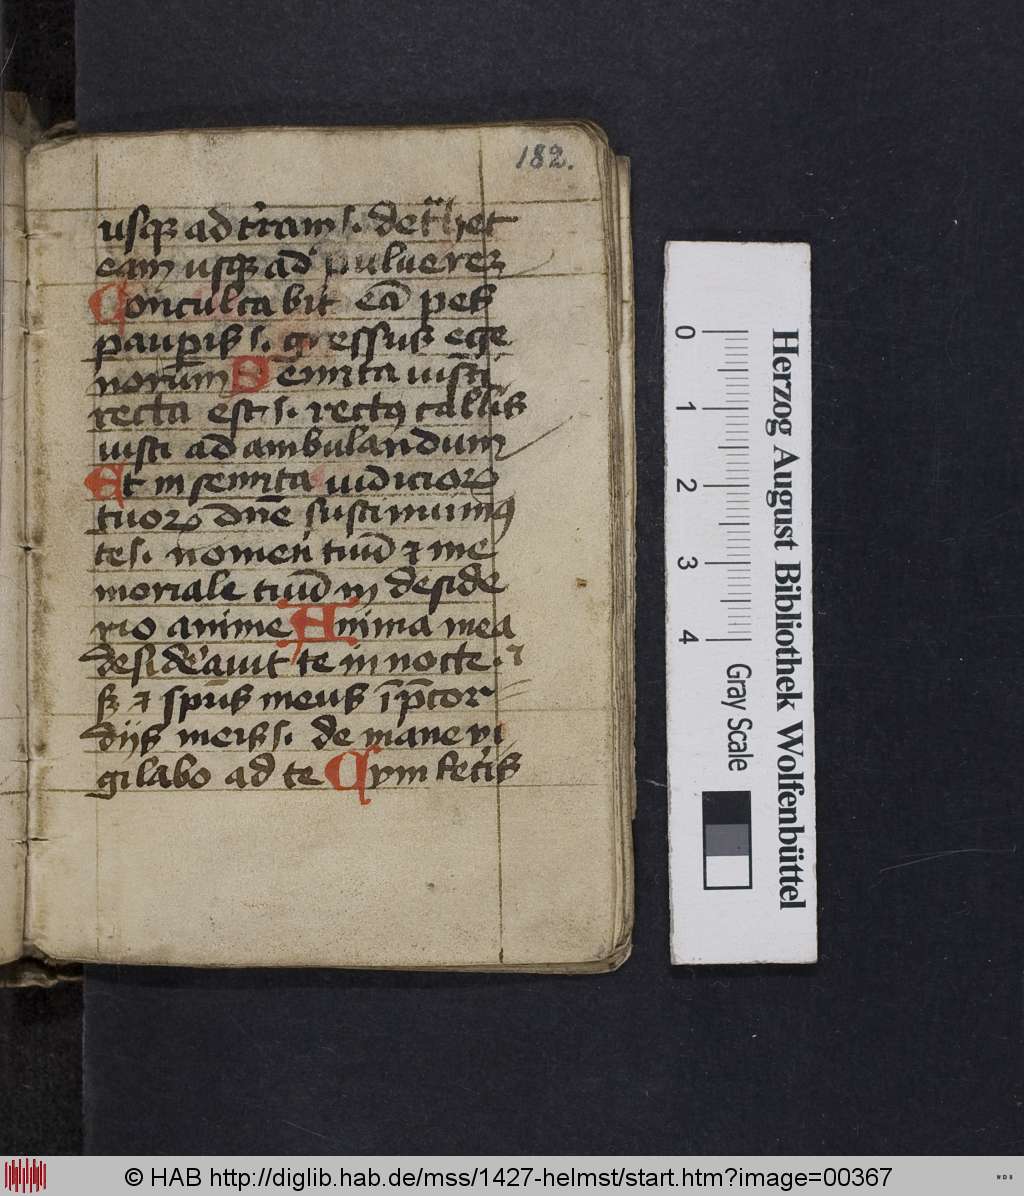 182.
usqꝫ ad tr̃am ſ. det͛het
eam usqꝫ ad puluereꝫ
Conculcabit eā pes
paup̲is ſ. greſſus ege
norum Semita iusti
recta est ſ. rectꝰ callis
iusti ad ambulandum
Et in semita iudicioꝝ
tuoꝝ dn̄e sustinuimꝰ
te ſ. nomen tuū ⁊ me
moriale tuū in deside
rio anime Anima mea
desid͛auit te in nocte. ⁊
sꝫ ⁊ sp̄us meus ī p̄cor
dijs meis ſ. de mane vi
gilabo ad te Cym fec͛is
0 1 2 3 4
Gray Scale
Herzog August Bibliothek Wolfenbüttel
© HAB http://diglib.hab.de/mss/1427-helmst/start.htm?image=00367